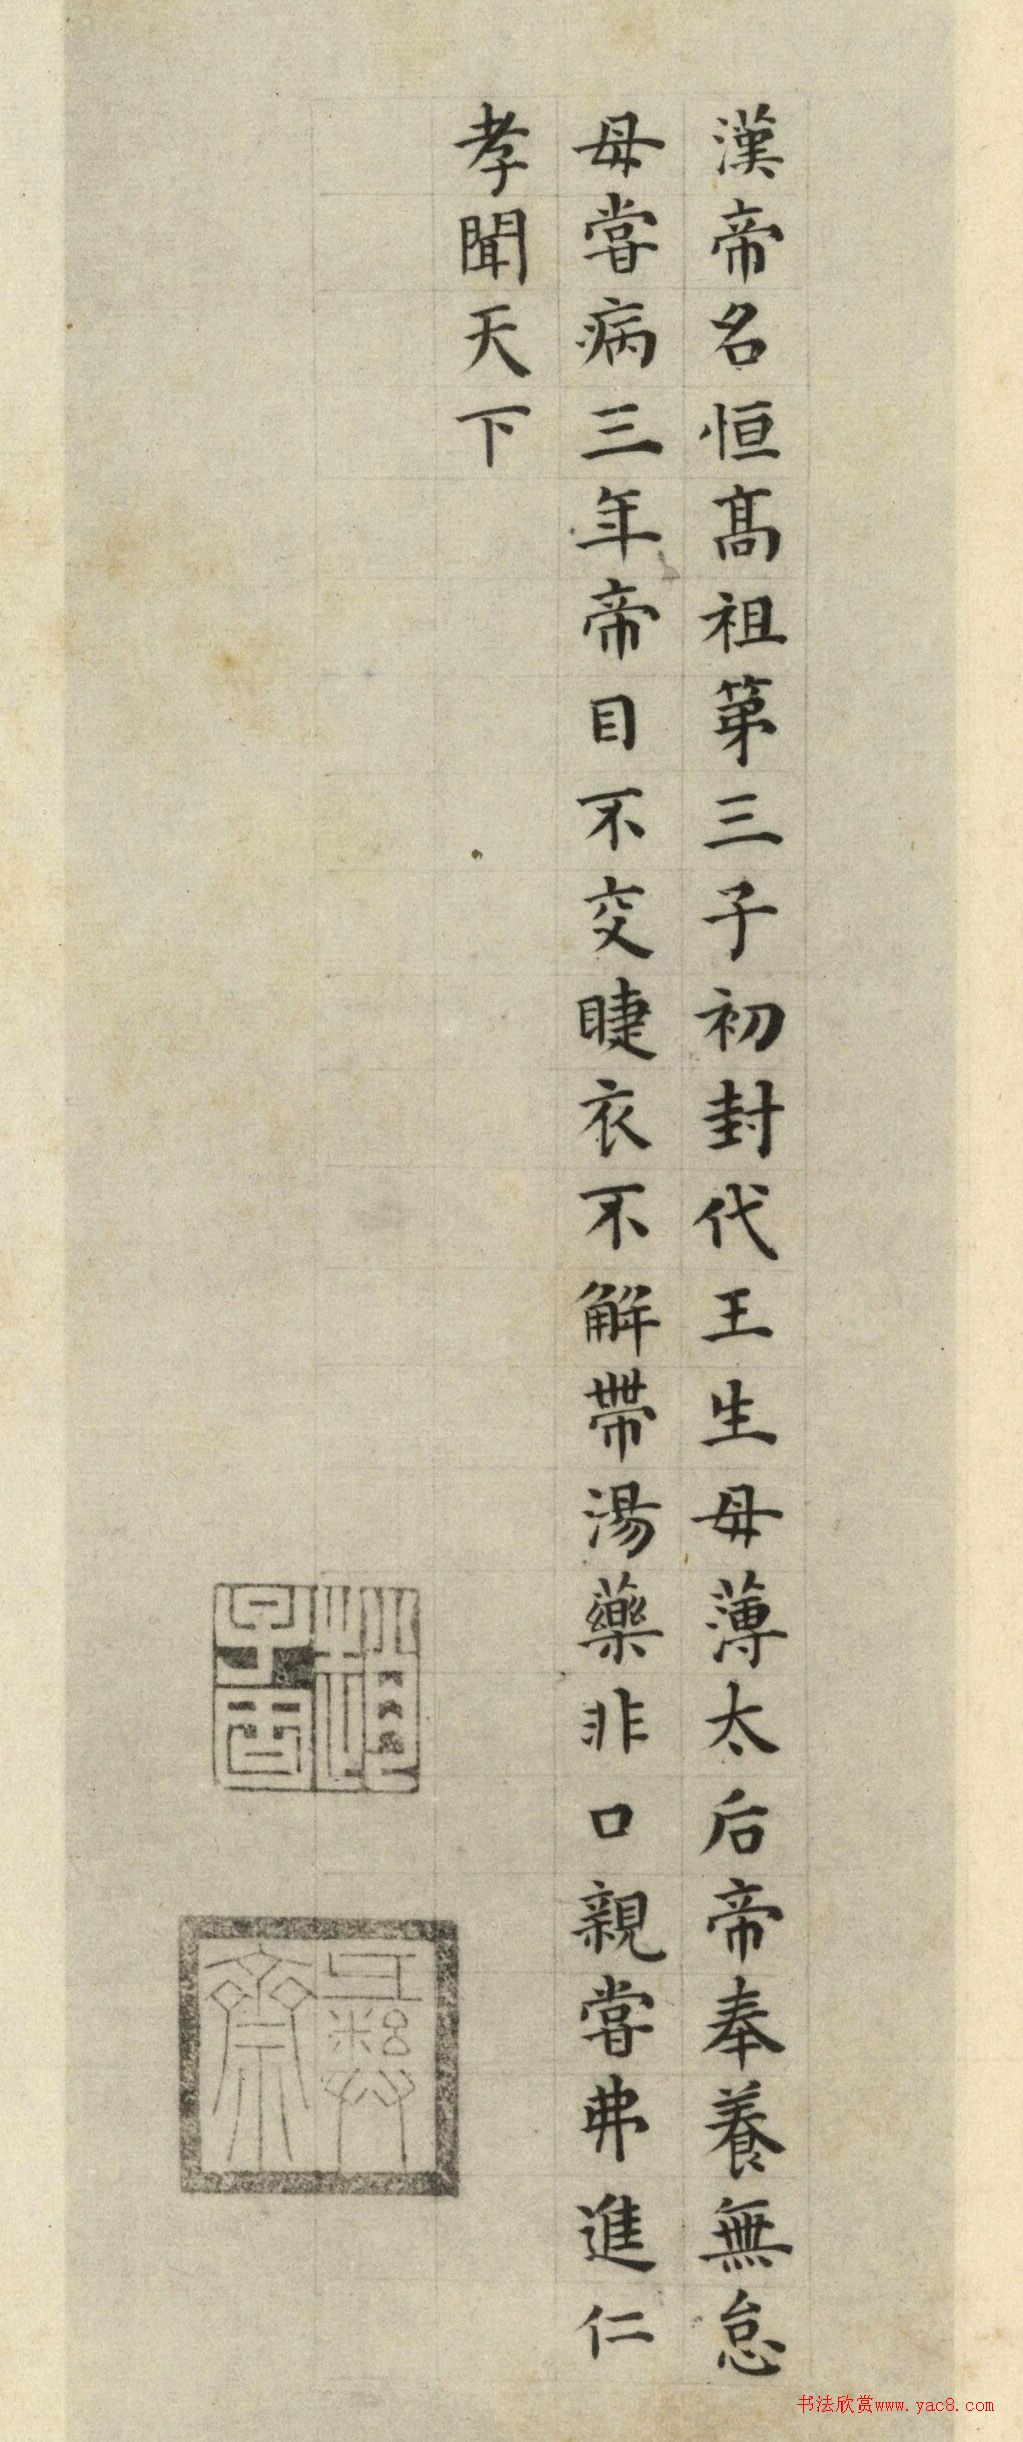 漢帝名恒高祖第三子初封代王生母薄太后帝奉養無怠
母嘗病三年帝目不交睫衣不解帶湯藥非口親嘗弗進仁
孝聞天下
书法欣赏www.yac8.com